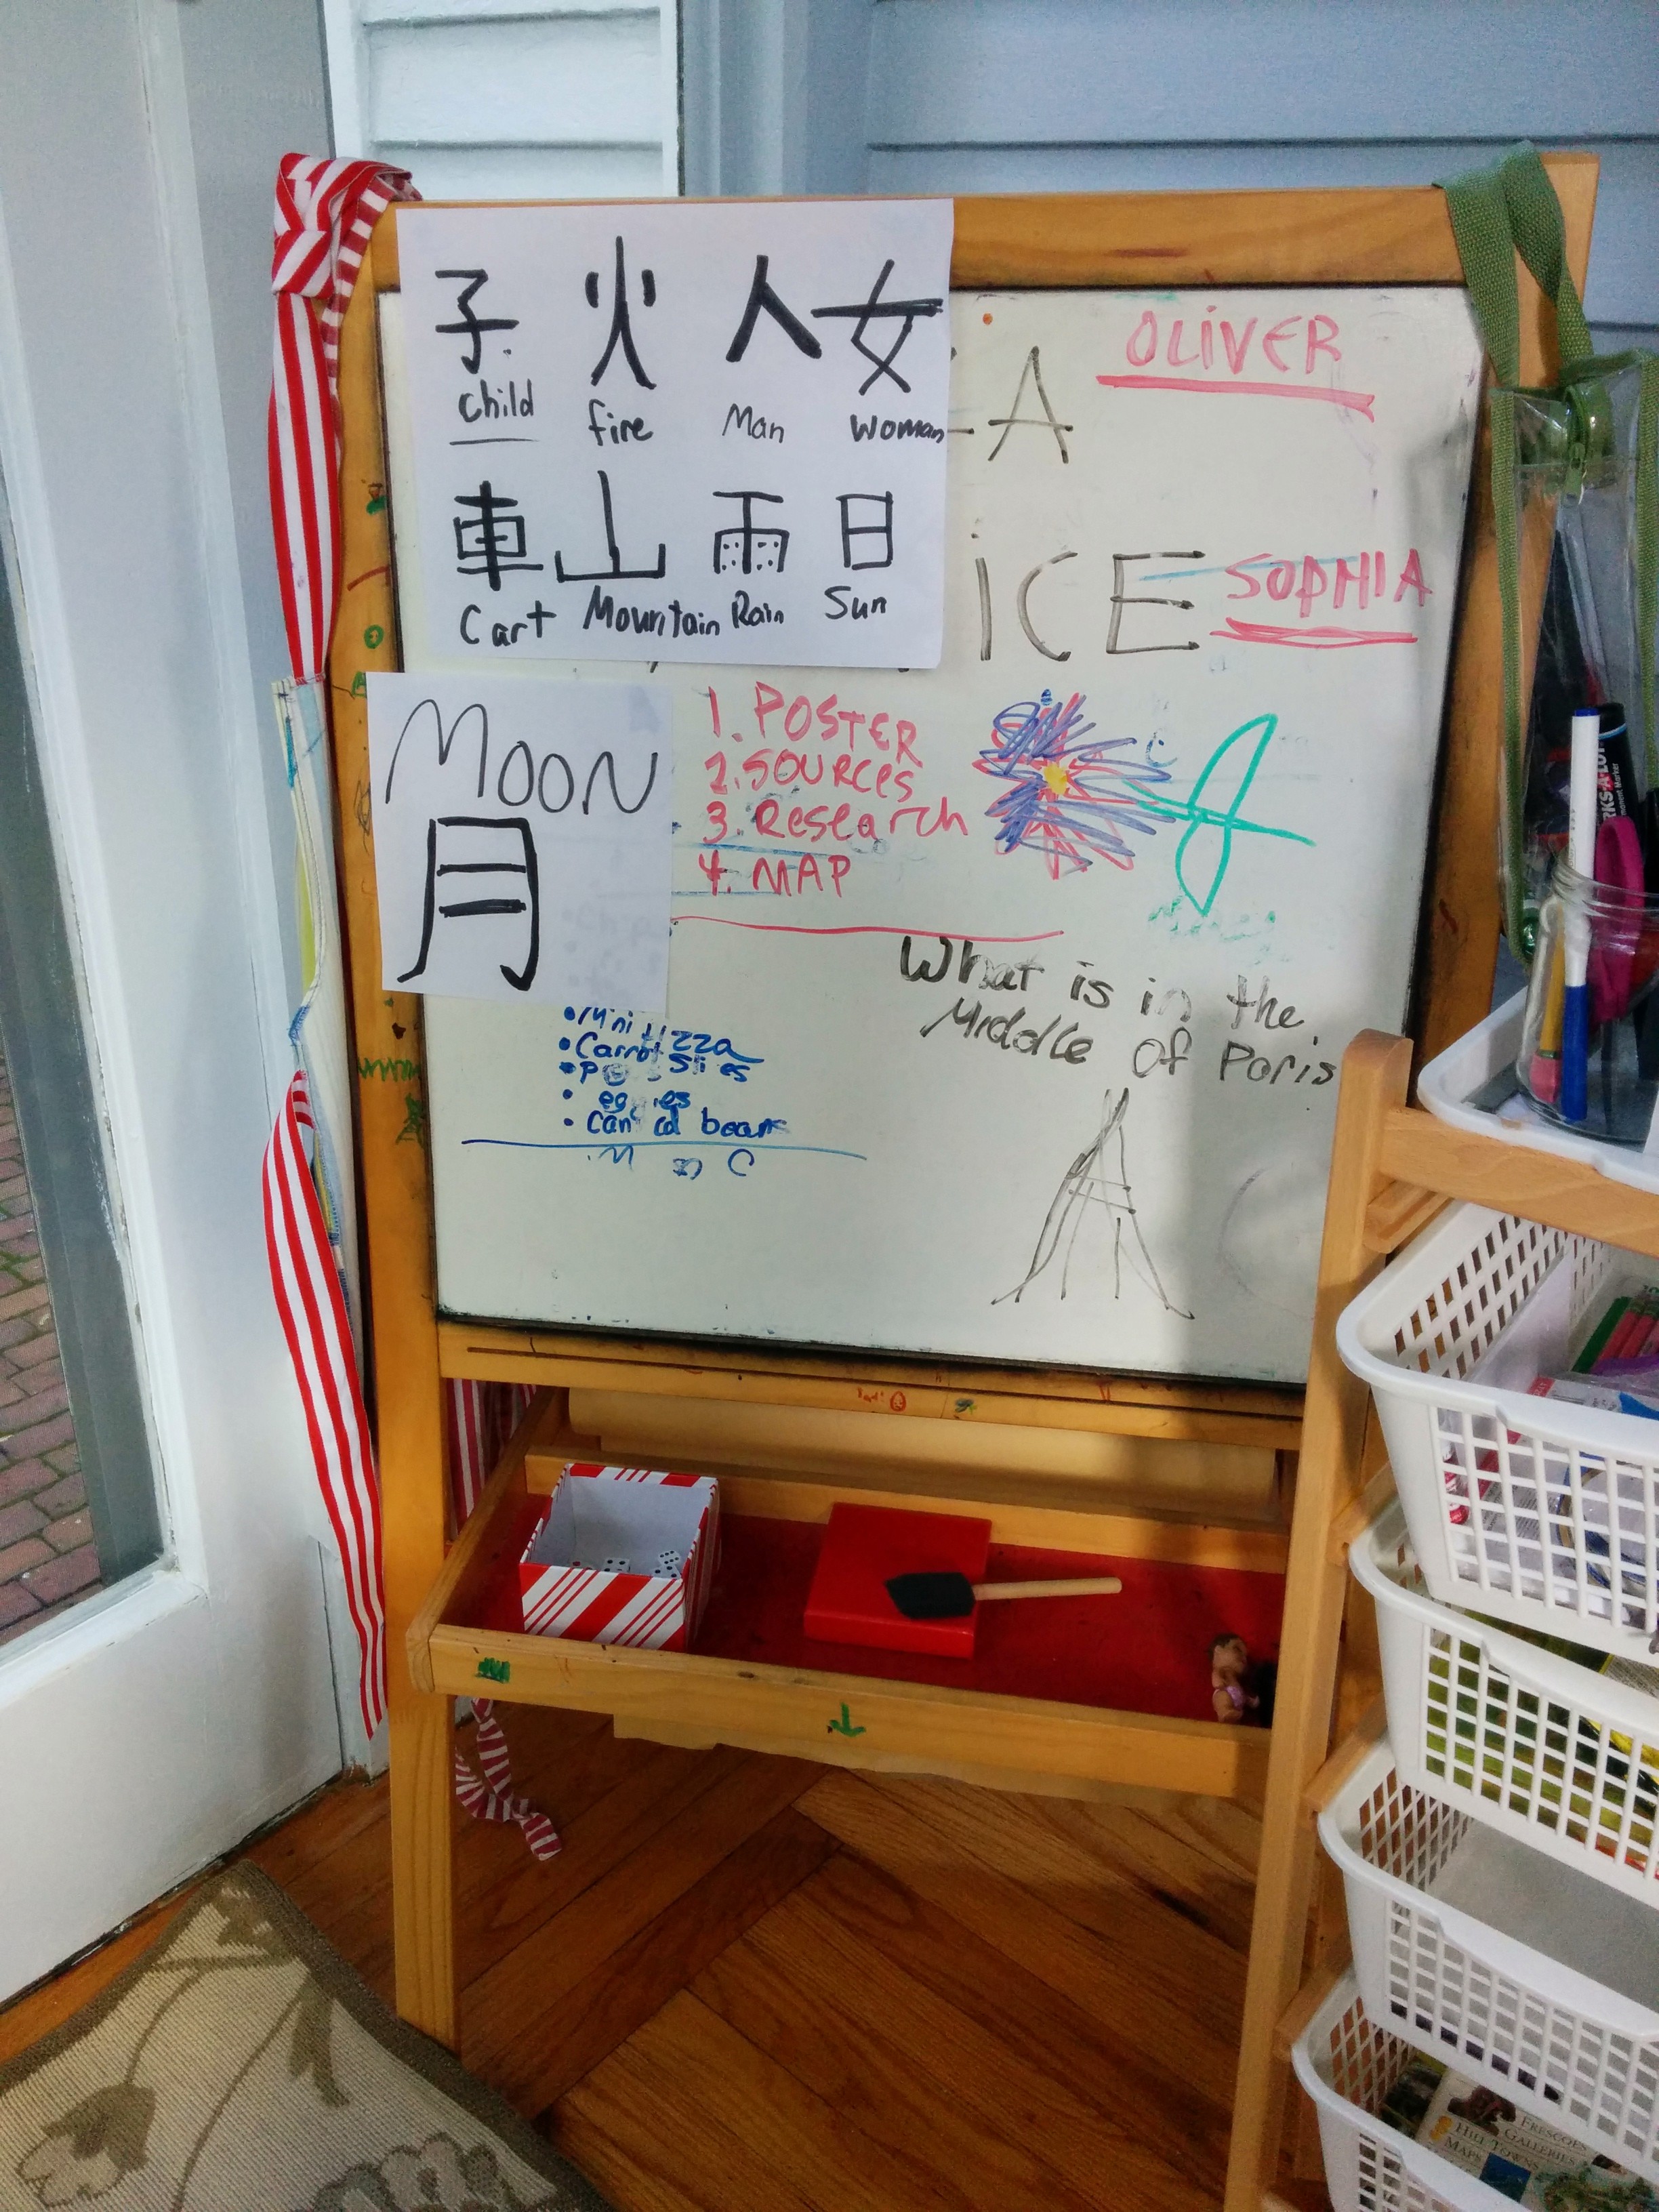 子 火 人 女
child fire Man woman
車 山 雨 日
Cart Mountain Rain Sun
A
OLIVER
ICE
SOPHIA
MOON
月
1. POSTER
2. SOURCES
3. Research
4. MAP
What is in the
Middle of Paris
• Mini Pizza
• Carrot
• Can
M C
FRESCOES
GALLERIES
HILL TOWNS
MAPS